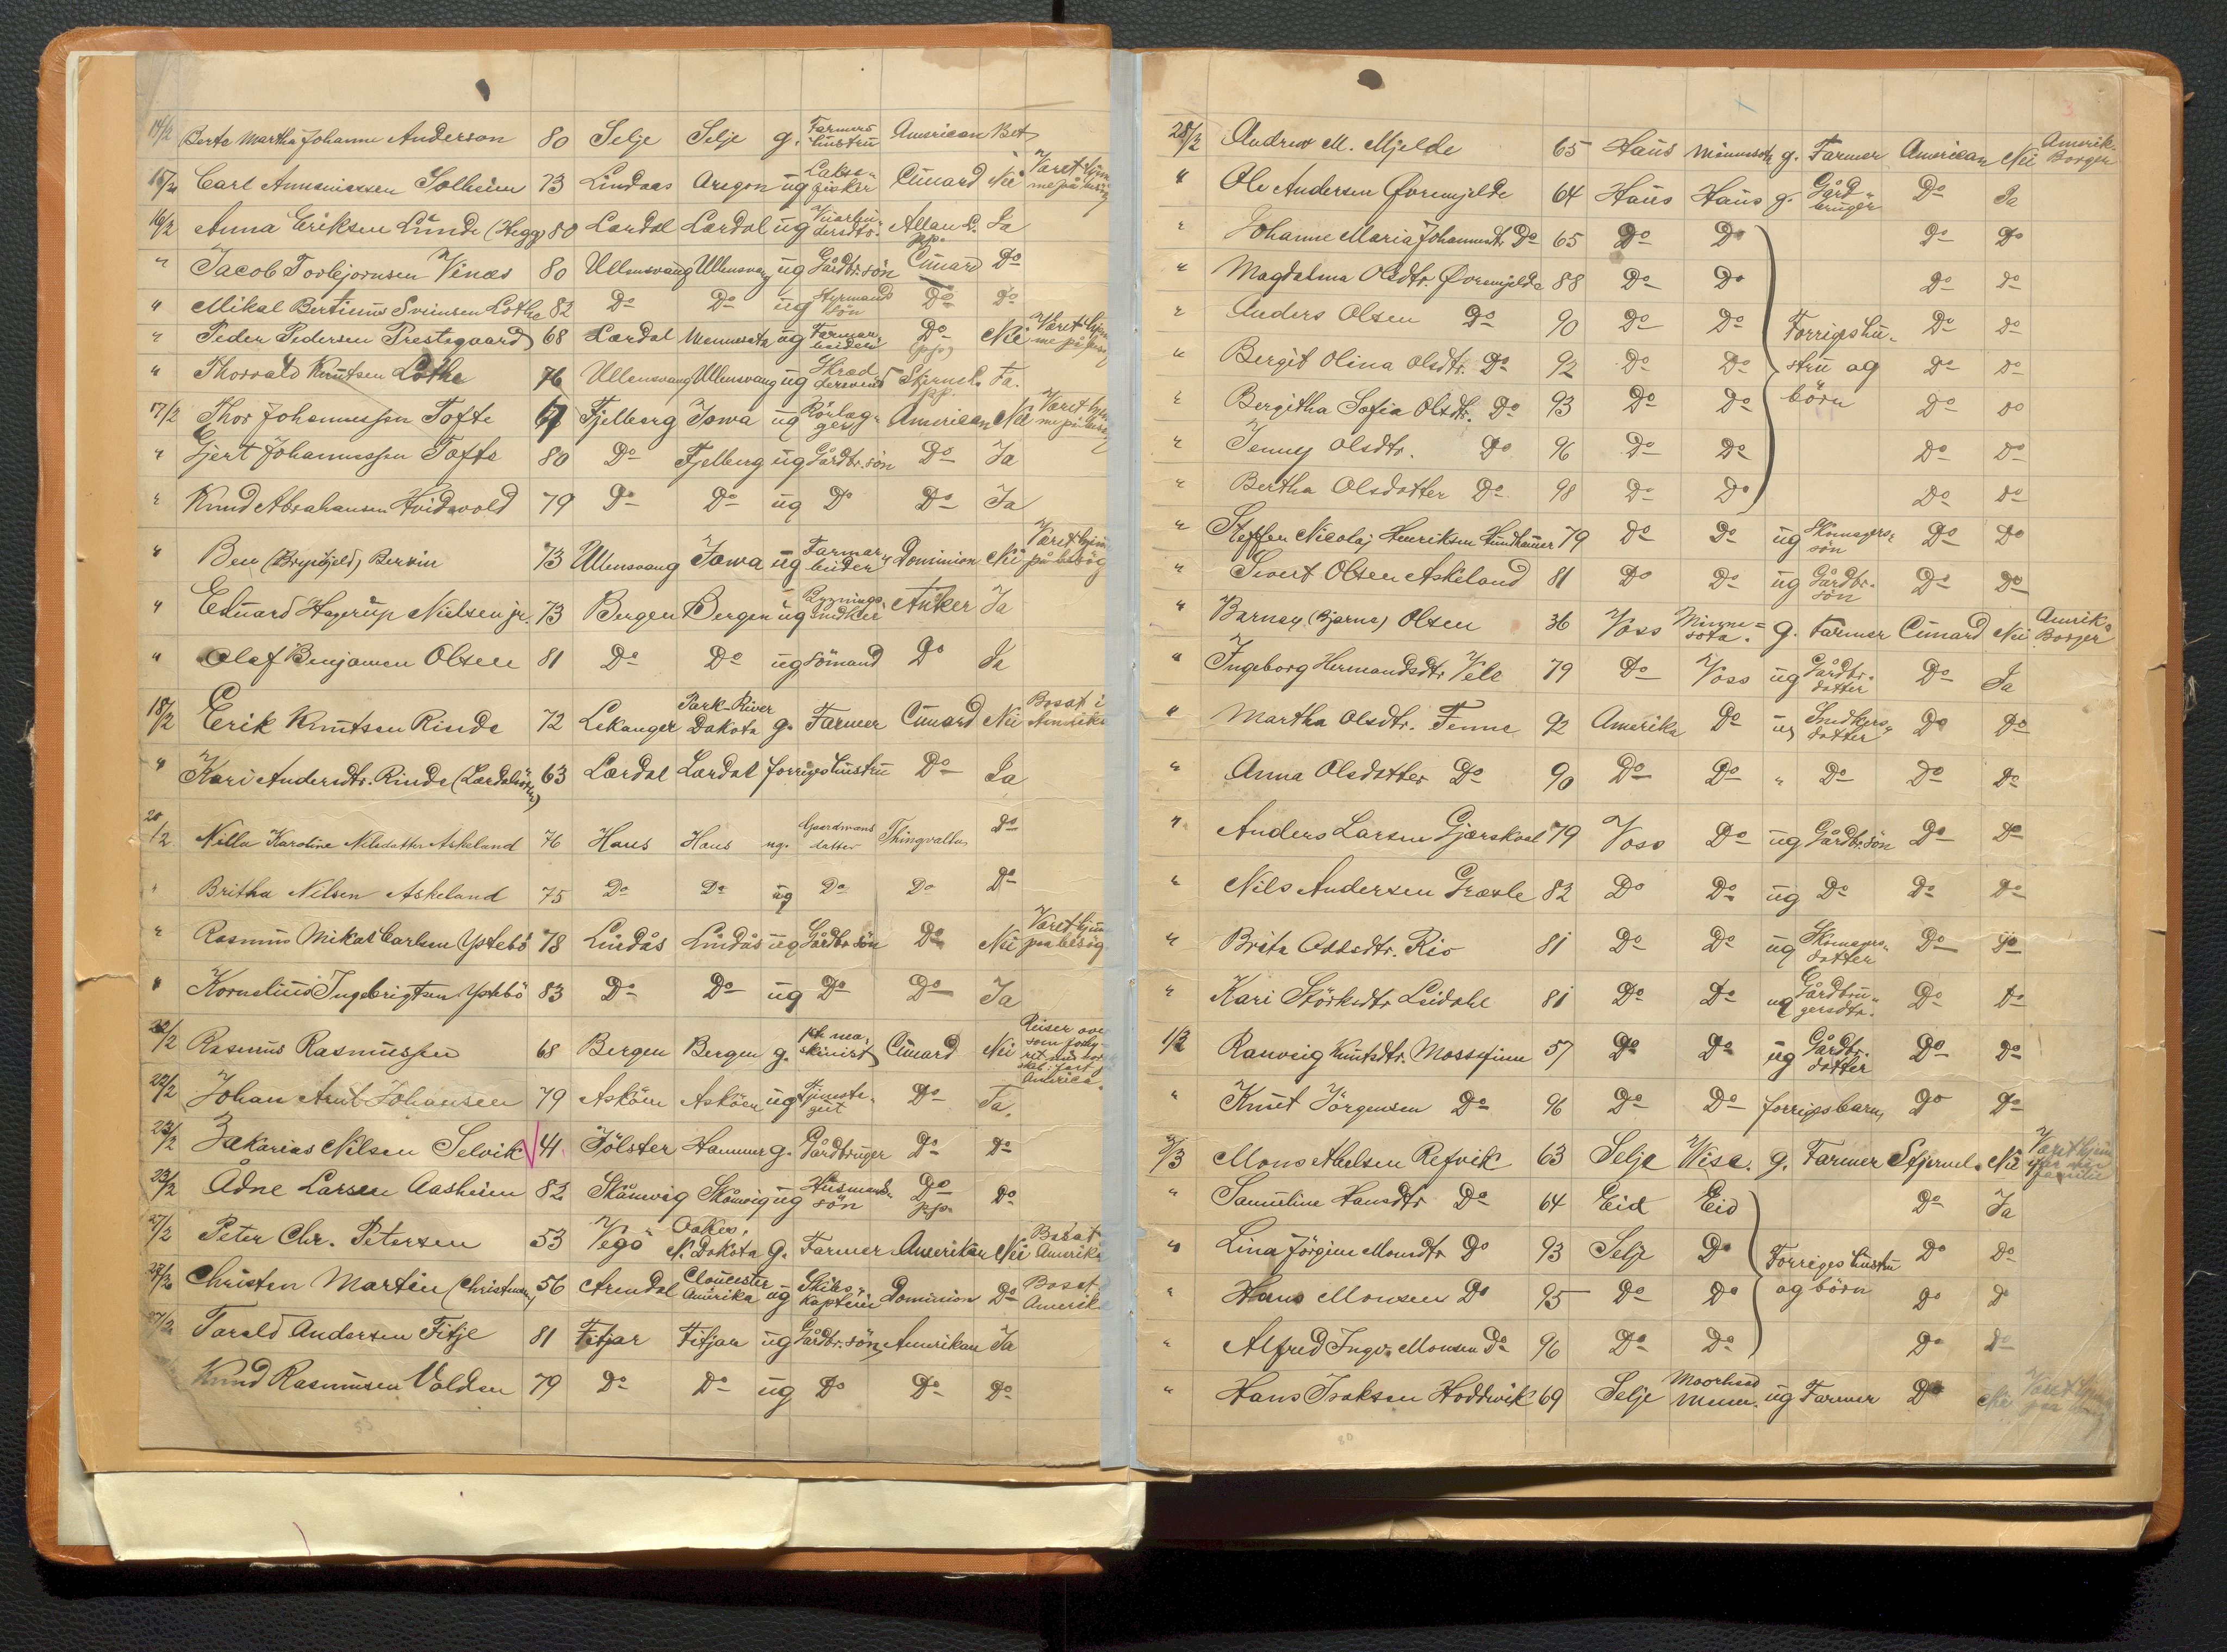 14/2 Berte Martha Johanne Anderson 80 Selje Selje g. Farmers hustru American Bet
15/2 Carl Annaniassen Solheim 73 Lindaas Oregon ug Laksefisker Cunard Nei Været hjemme på besøg
16/2 Anna Eriksen Lunde (Hegg) 80 Lærdal Lærdal ug Allan L. pp. Ja
" Jacob Torbjornsen Vines 80 Ullensvang Ullensvang ug Gårdbr. sön Cunard Do
" Mikal Bertinius Svendsen Lothe 82 Do Do ug Styrmands sön Do Do
" Peder Pedersen Prestegaard 68 Lærdal Mennesota ug Farmarbeider Do (pp.) Nei Været hjemme på besøg
" Thorvald Knutsen Lothe 76 Ullensvang Ullensvang ug Skrædersvend Stjernel. pp. Ja.
17/2 Thor Johannessen Tofte 67 Fjelberg Iowa ug Rörlægger American Nei Været hjemme på besøg
" Gjert Johannessen Tofte 80 Do Fjelberg ug Gårdbr. sön Do Ja
" Knud Abrahamsen Hvidevold 79 Do Do ug Do Do Ja
" Ben (Brynhjeld) Bervin 73 Ullensvang Iowa ug Farmarbeider Dominion Nei Været hjem på besög
" Eduard Hagerup Nielsen jr. 73 Bergen Bergen ug Bygningssnedker Anker Ja
" Olaf Benjamen Olsen 81 Do Do ug sömand Do Ja
18/2 Eerik Knutsen Rinde 72 Lekanger Park-River Dakota g. Farmer Cunard Nei Bosat i Amerika
" Kari Andersdtr. Rinde (Lærdalsören) 63 Lærdal Lærdal forriges hustru Do Ja
20/2 Nilla Karoline Nilsdatter Askeland 76 Haus Haus ug. Gaardmans datter Thingvalla Do
" Britha Nilsen Askeland 75 Do Do ug Do Do Do
" Rasmus Mikal Carlsen Ystebö 78 Lindås Lindås ug Gårdbr sön Do Nei Været hjem paa besög.
" Kornelius Ingebrigtsen Ystebö 83 Do Do ug Do Do Ja
22/2 Rasmus Rasmussen 68 Bergen Bergen g. maskinist Cunard Nei Reiser over som America.
22/2 Johan Arnt Johansen 79 Asköen Asköen ug Tjenestegut Do Ja.
23/2 Zakarias Nilsen Selvik 41. Jölster Hammer g. Gårdbruger Do Do
23/2 Ådne Larsen Aasheim 82 Skånevig Skånevig ug Husmands sön Do pp. Do
27/2 Peter Chr. Petersen 53 Vegö Oakes, N. Dakota g. Farmer Amerikan Nei Bosat Amerika
27/2 Christen Martin (Christensen) 56 Arendal Cloucester Amerika ug Skibskaptein Dominion Do Bosat Amerika
27/2 Tarald Andersen Fitje 81 Fitjar Fitjar ug Gårdbr. sön Amerikan Ja
Knud Rasmussen Volden 79 Do Do ug Do Do Do
53
3
28/2 Andrew M. Mjelde 65 Haus Minnesota g. Farmer American Nei Amerik. Borger
" Ole Andersen Övremjelde 64 Haus Haus g. Gårdbruger Do Ja
" Johanne Maria Johannesdtr. Do 65 Do Do Do Do
" Magdalena Olsdtr. Övremjelde 88 Do Do Do Do
" Anders Olsen Do 90 Do Do Forriges hustru og börn Do Do
" Bergit Olina Olsdtr. Do 92 Do Do Do Do
" Bergitha Sofia Olsdtr. Do 93 Do Do Do Do
" Jenny Olsdtr. Do 96 Do Do Do Do
" Bertha Olsdatter Do 98 Do Do Do Do
" Steffen Nicolaj Henriksen Hundhamer 79 Do Do ug Skomagers sön Do Do
" Sivert Olsen Askeland 81 Do Do ug Gårdbr. sön Do Do
" Barney (Bjarne) Olsen 36 Voss Minnesota. g. Farmer Cunard Nei Amrik. Borger
" Ingeborg Hermandsdtr Vele 79 Do Voss ug Gårdbr. datter Do Ja
" Martha Olsdtr. Fenne 92 Amerika Do ug Snedkers datter Do Do
" Anna Olsdatter Do 90 Do Do " Do Do Do
" Anders Larsen Gjerskvel 79 Voss Do ug Gårdbr. sön Do Do
" Nils Andersen Græsle 82 Do Do ug Do Do Do
" Brita Oddsdtr. Rio 81 Do Do ug Skomagers datter Do Do
" Kari Störksdtr Leidahl 81 Do Do ug Gårdbrugersdtr. Do Do
1/3 Ranveig Knutsdtr. Mossefinn 57 Do Do ug Gårdbr. datter Do Do
" Knut Jörgensen Do 96 Do Do forriges barn Do Do
2/3 Mons Abelsen Refvik 63 Selje Wisc. g. Farmer Stjernel. Nei Været hjem
" Samuline Hansdtr Do 64 Eid Eid Do Ja
" Lina Jörgine Monsdtr Do 93 Selje Do Forriges hustru og börn Do Do
" Hans Monsen Do 95 Do Do Do Do
" Alfred Ingv. Monsen Do 96 Do Do Do Do
" Hans Isaksen Hoddevik 69 Selje Moorhead Minn. ug Farmer Do Nei Været hjem paa besög
80